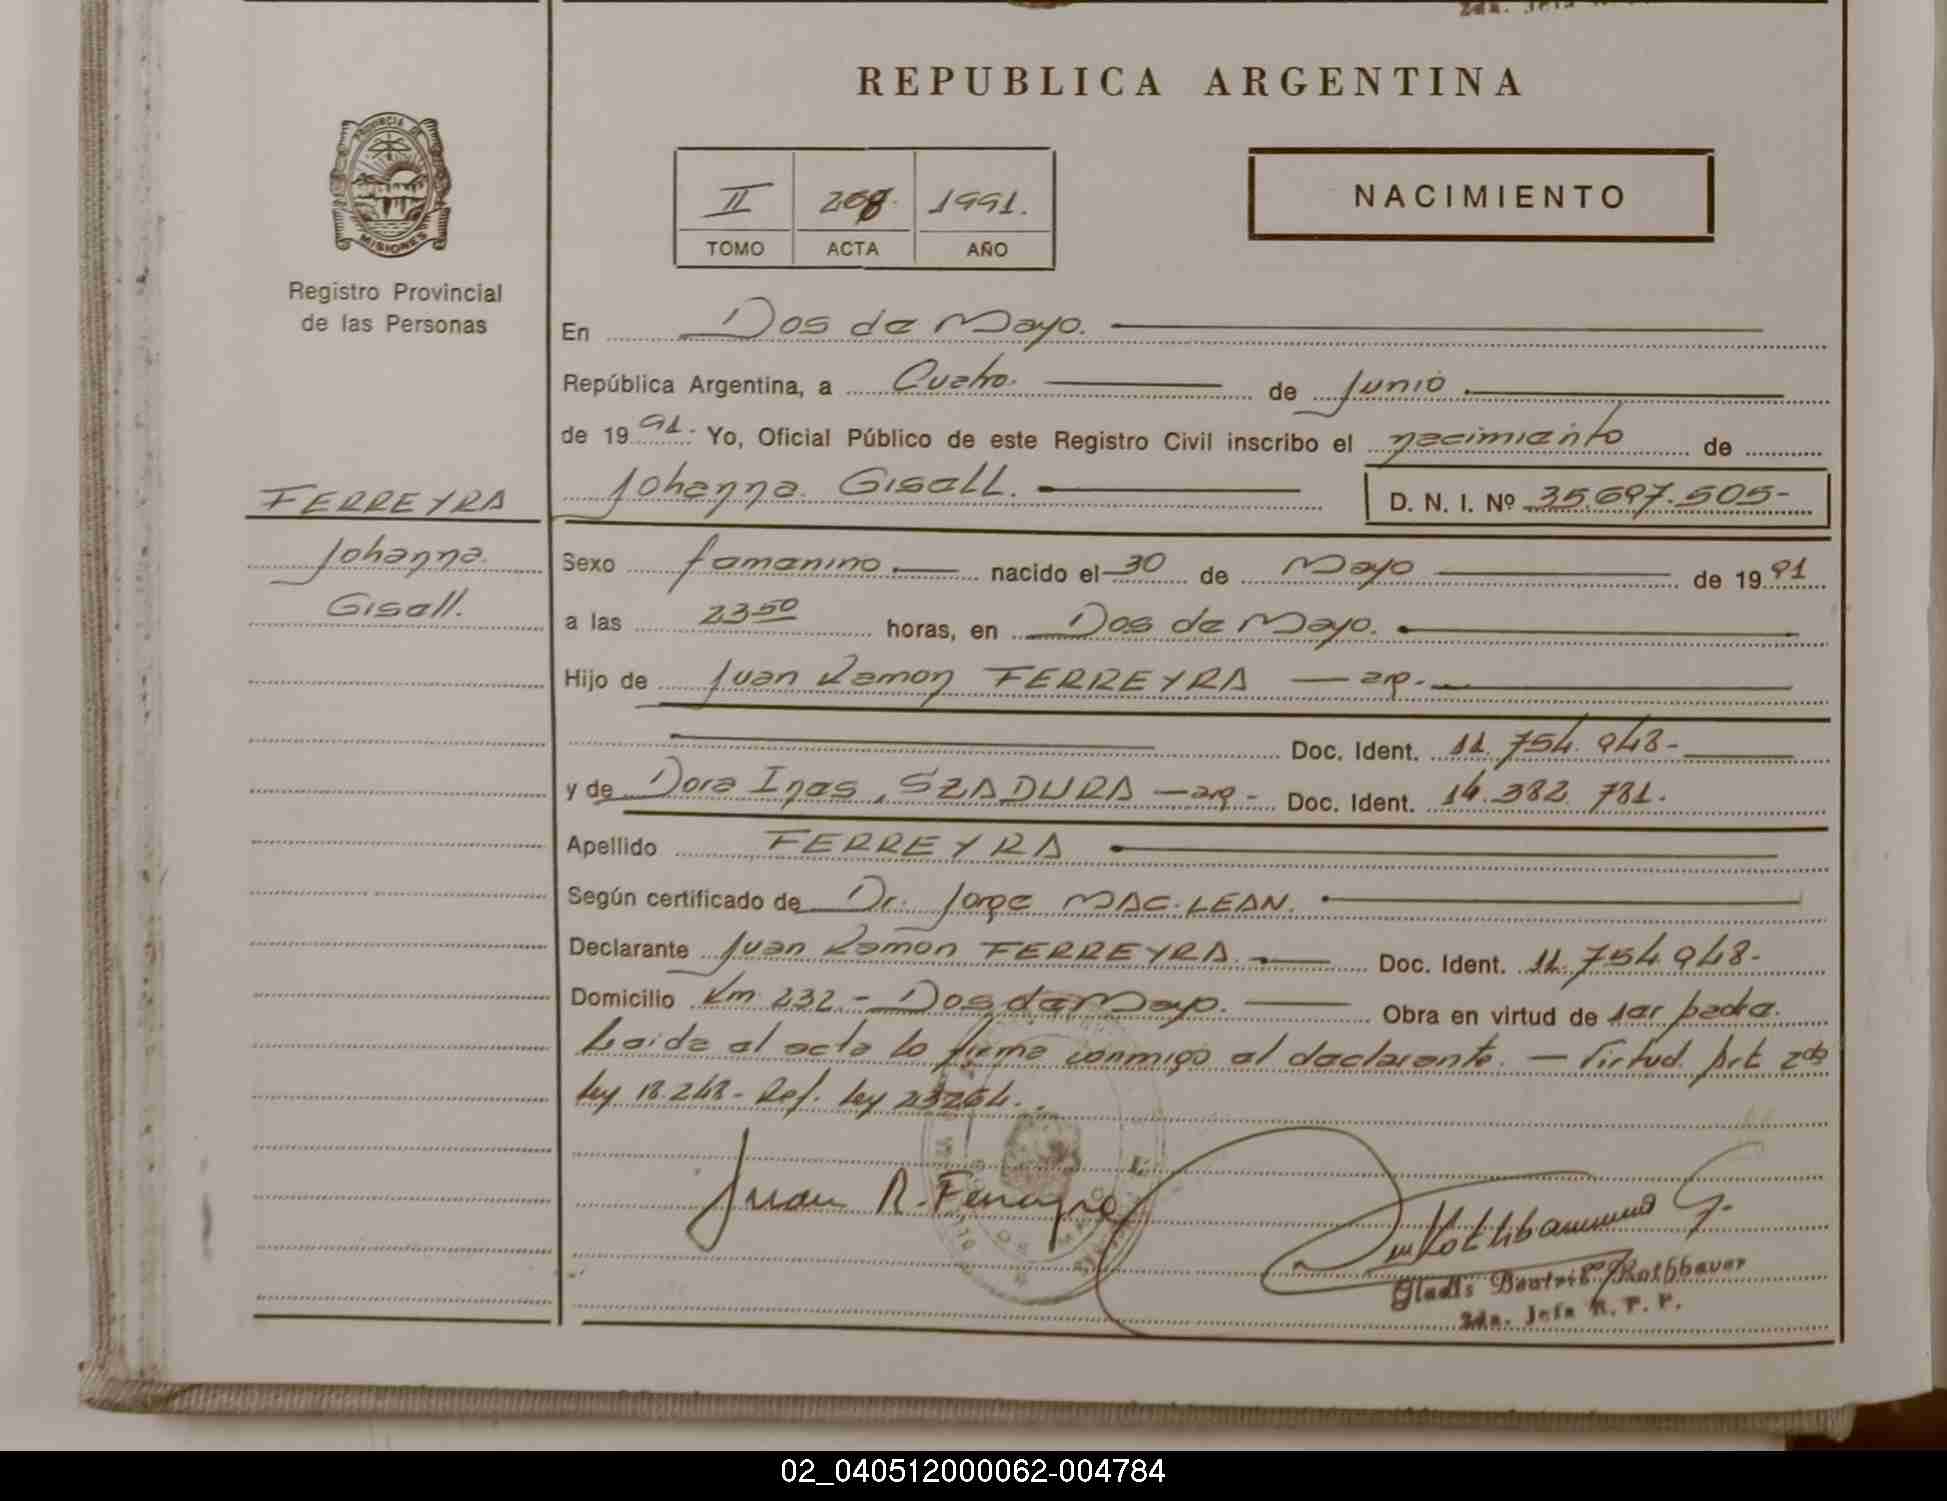 REPUBLICA ARGENTINA
PROVINCIA DE
MISIONES
Registro Provincial
de las Personas
II 208. 1991.
TOMO ACTA AÑO
NACIMIENTO
En Dos de Mayo.
República Argentina, a Cuatro. de Junio
de 19 91. Yo, Oficial Público de este Registro Civil inscribo el nacimiento de
Johanna Gisell. D. N. I. Nº 35.697.505-
FERREYRA
Johanna
Gisell.
Sexo femenino nacido el 30 de Mayo de 19 91
a las 23 50 horas, en Dos de Mayo.
Hijo de Juan Ramon FERREYRA — arg.
Doc. Ident. 11.754.948-
y de Dora Ines, SZADURA — arg - Doc. Ident. 14.382.781.
Apellido FERREYRA
Según certificado de Dr. Jorge MAC-LEAN.
Declarante Juan Ramon FERREYRA. Doc. Ident. 11.754.948-
Domicilio Km 232 - Dos de Mayo. Obra en virtud de ser padre.
Leida el acta lo firma conmigo el declarante. — Virtud. Art 2do
ley 18.248- Ref. ley 23264.
Juan R. Ferreyra
Rothbauer G.
Gladis Beatriz Rothbauer
2da. Jefa R. P. P.
02_040512000062-004784